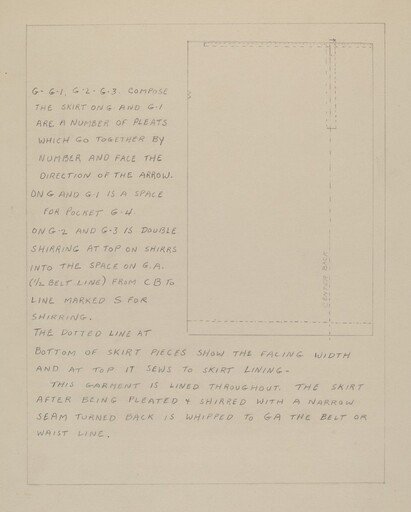 G- G-1, G-2- G-3 COMPOSE
THE SKIRT ON G AND G-1
ARE A NUMBER OF PLEATS
WHICH GO TOGETHER BY
NUMBER AND FACE THE
DIRECTION OF THE ARROW.
ON G AND G-1 IS A SPACE
FOR POCKET G-4
ON G-2 AND G-3 IS DOUBLE
SHIRRING AT TOP ON SHIRRS
INTO THE SPACE ON G.A.
(1/2 BELT LINE) FROM CB TO
LINE MARKED S FOR
SHIRRING.
THE DOTTED LINE AT
BOTTOM OF SKIRT PIECES SHOW THE FACING WIDTH
AND AT TOP IT SEWS TO SKIRT LINING-
THIS GARMENT IS LINED THROUGHOUT. THE SKIRT
AFTER BEING PLEATED & SHIRRED WITH A NARROW
SEAM TURNED BACK IS WHIPPED TO GA THE BELT OR
WAIST LINE.
CENTER BACK